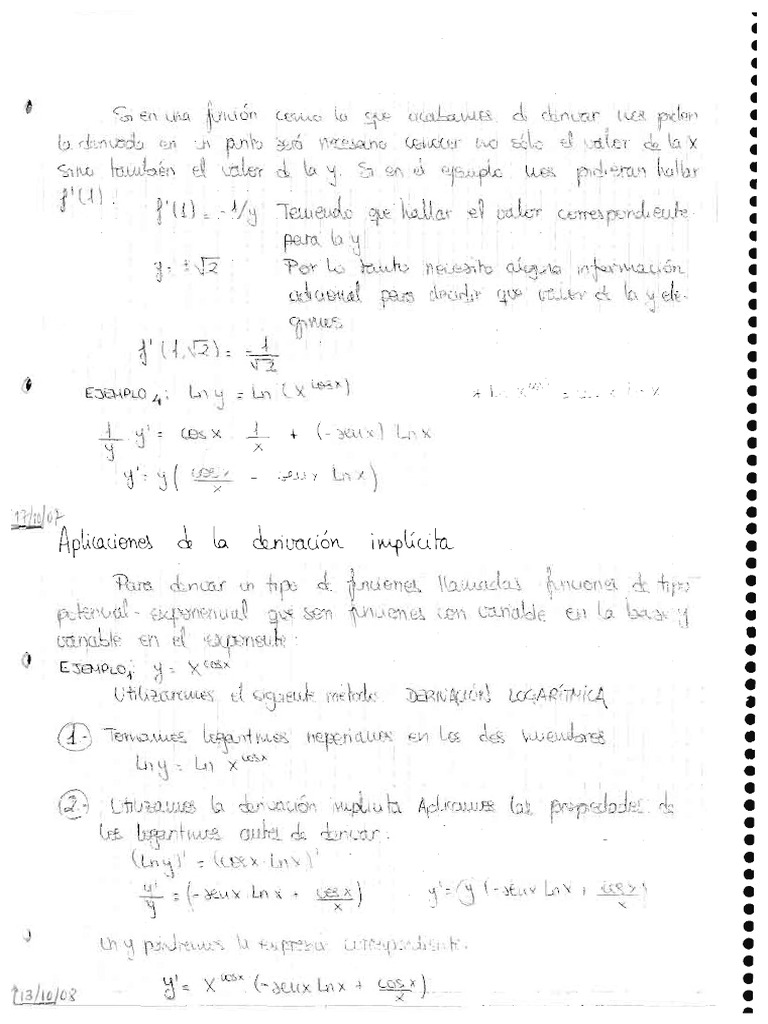 Si en una función como la que acabamos de derivar nos piden
la derivada en un punto será necesario conocer no sólo el valor de la x
sino también el valor de la y. Si en el ejemplo nos pidieran hallar
f'(1).
f'(1) = -1/y Teniendo que hallar el valor correspondiente
para la y
y = ±√2 Por lo tanto necesito alguna información
adicional para decidir que valor de la y ele-
gimos
f'(1,√2) = -1/√2
EJEMPLO 4: Ln y = Ln (x^cosx)
1/y y' = cosx 1/x + (-senx) Lnx
y' = y (cosx/x - senx Lnx)
17/10/07
Aplicaciones de la derivación implícita
Para derivar un tipo de funciones llamadas funciones de tipo
potencial-exponencial que son funciones con variable en la base y
variable en el exponente:
EJEMPLO 1: y = x^cosx
Utilizaremos el siguiente método DERIVACIÓN LOGARÍTMICA
1.- Tomamos logaritmos neperianos en los dos miembros
Ln y = Ln x^cosx
2.- Utilizamos la derivación implícita Aplicamos las propiedades de
los logaritmos antes de derivar.
(Ln y)' = (cosx·Lnx)'
y'/y = (-senx Lnx + cosx/x) y' = y (-senx Lnx + cosx/x)
y pondremos la correspondiente.
y' = x^cosx (-senx Lnx + cosx/x)
13/10/08